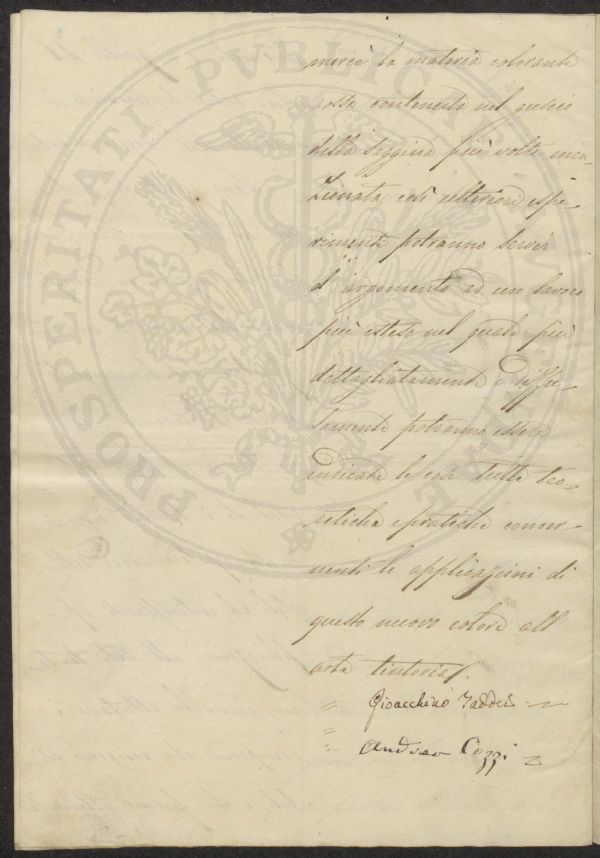 PROSPERITATI PVBLICAE AVGENDAE
mercè la materia colorante
rossa contenuta nel guscio
della saggina più volte men-
zionata, così ulteriori espe-
rimenti potranno servir
d'argomento ad un lavoro
più esteso nel quale più
dettagliatamente e diffu-
samente potranno essere
indicate le cose tutte teo-
retiche e pratiche concer-
nenti le applicazioni di
questo nuovo colore all
arte tintoria.
Gioacchino Taddei
Andrea Cozzi